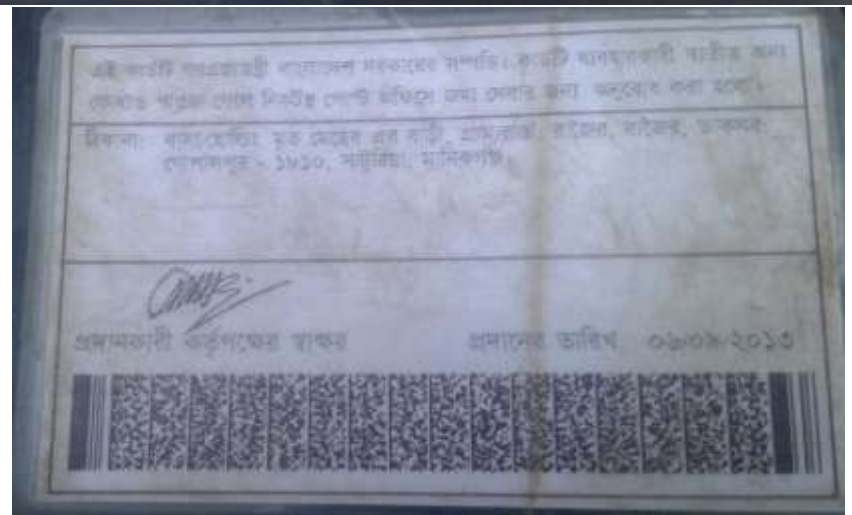 এই কার্ডটি গণপ্রজাতন্ত্রী বাংলাদেশ সরকারের সম্পত্তি। কার্ডটি ব্যবহারকারী ব্যতীত অন্য
কোথাও পাওয়া গেলে নিকটস্থ পোস্ট অফিসে জমা দেবার জন্য অনুরোধ করা হলো।
ঠিকানা: বাসা/হোল্ডিং: মৃত এর বাড়ী, গ্রাম/রাস্তা: রাজৈর, রাজৈর, ডাকঘর:
- ১৮১০, সাটুরিয়া, মানিকগঞ্জ
প্রদানকারী কর্তৃপক্ষের স্বাক্ষর প্রদানের তারিখ